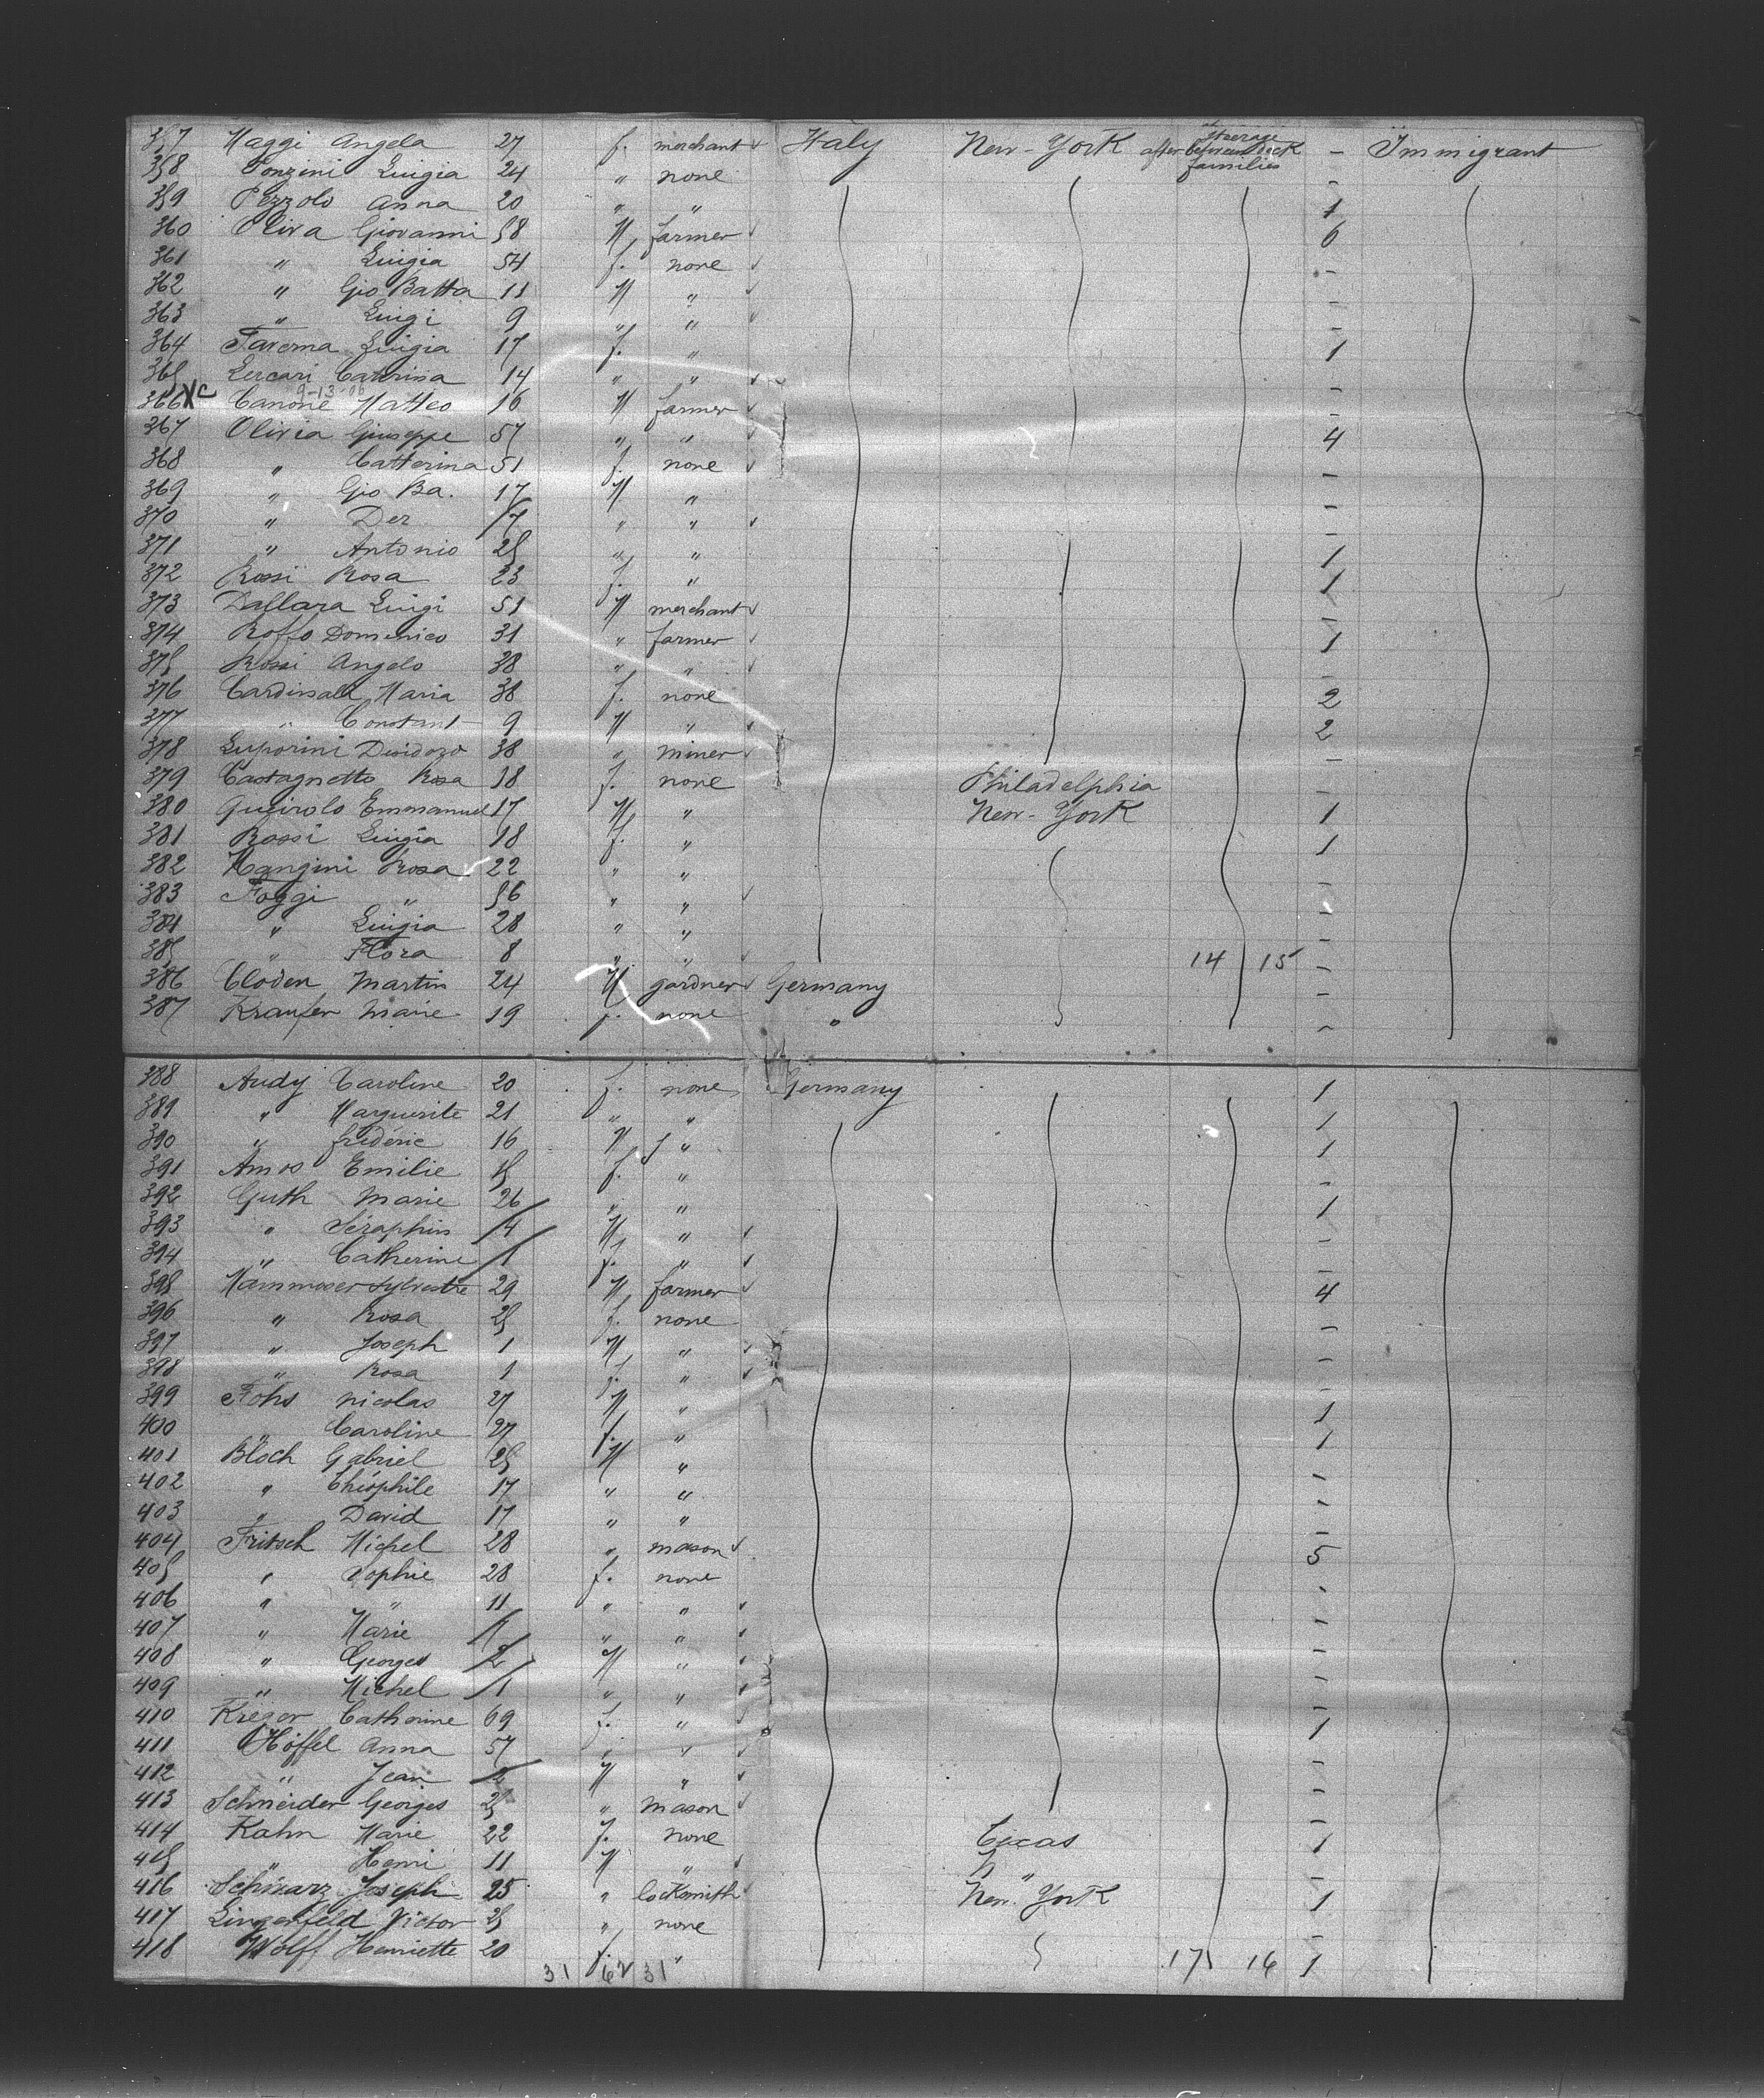 357 Maggi Angela 27 f. merchant Italy New-York after steerage between deck families - Immigrant
358 Ponzini Luigia 24 " none -
359 Pezzolo Anna 20 " " 1
360 Oliva Giovanni 58 M farmer 6
361 " Luigia 54 f. none -
362 " Gio Batta 11 M " -
363 " Luigi 9 " " -
364 Taverna Luigia 17 f. " 1
365 Lercari Catrina 14 " " -
9-13-06
366 XC Canone Matteo 16 M farmer -
367 Olivia Giuseppe 57 " " 4
368 " Catterina 51 f. none -
369 " Gio Ba. 17 M " -
370 " Der 7 " " -
371 " Antonio 25 " " 1
372 Rossi Rosa 23 f. " 1
373 Dallara Luigi 51 M merchant -
374 Roffo Domenico 31 " farmer 1
375 Rossi Angelo 38 " " -
376 Cardinale Maria 38 f. none 2
377 " Constant 9 M " 2
378 Luporini 38 " miner -
379 Castagnetto Rosa 18 f. none Philadelphia -
380 Queirolo Emmanuel 17 M " New-York 1
381 Rossi Luigia 18 f. " 1
382 Mangini Rosa 22 " " -
383 Foggi " 56 " "
384 " Luigia 28 " " -
385 " Flora 8 " " 14 15 -
386 Cloden Martin 24 M gardner Germany -
387 Kraufer Marie 19 f. none " -
388 Audy Caroline 20 f. none Germany 1
389 " Marguerite 21 " " 1
390 " frédéric 16 M " 1
391 Amos Emilie 15 f. " -
392 Guth Marie 26 " " 1
393 " Séraphin 4 M " -
394 " Catherine 1 f. " -
395 Hammoser Sylvestre 29 M farmer 4
396 " Rosa 25 f. none -
397 " Joseph 1 M " -
398 " Rosa 1 f. " -
399 Fohs nicolas 27 M " 1
400 " Caroline 27 f. " 1
401 Bloch Gabriel 25 M " -
402 " Théophile 17 " " -
403 " David 17 " " -
404 Fritsch Michel 28 " mason 5
405 " Sophie 28 f. none -
406 " " 11 " " -
407 " Marie " " -
408 " Georges 2 M " -
409 " Michel 1 " " -
410 Kreger Catherine 69 f. " 1
411 Höffel Anna 57 " " -
412 " Jean 2 M " -
413 Schneider Georges 25 " mason -
414 Kahn Marie 22 f. none 1
415 " Henri 11 M " " -
416 Schwarz Joseph 25 " locksmith New-York 1
417 Lingenfeld Victor 25 " none -
418 Wolff Henriette 20 f. " 17 16 1
31 62 31